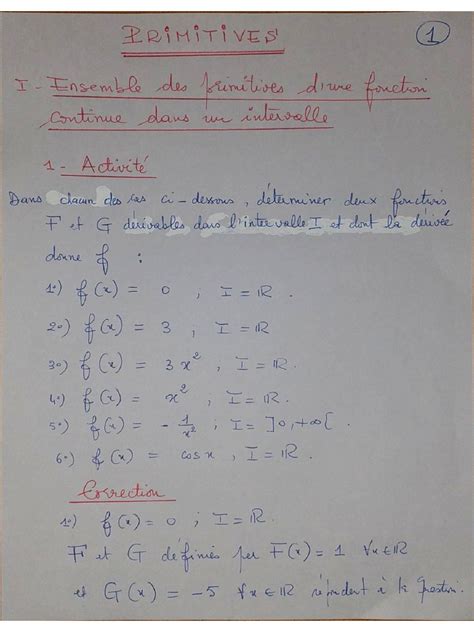 PRIMITIVES
1
I - Ensemble des primitives d'une fonction
continue dans un intervalle
1 - Activité
Dans chacun des cas ci-dessous, déterminer deux fonctions
F et G dérivables dans l'intervalle I et dont la dérivée
donne f :
1°) f(x) = 0 ; I = ℝ.
2°) f(x) = 3 ; I = ℝ
3°) f(x) = 3x² ; I = ℝ.
4°) f(x) = x² ; I = ℝ.
5°) f(x) = -1/x² ; I = ]0, +∞[.
6°) f(x) = cosx, I = ℝ.
Correction
1°) f(x) = 0 ; I = ℝ.
F et G définies par F(x) = 1 ∀x∈ℝ
et G(x) = -5 ∀x∈ℝ répondent à la question.